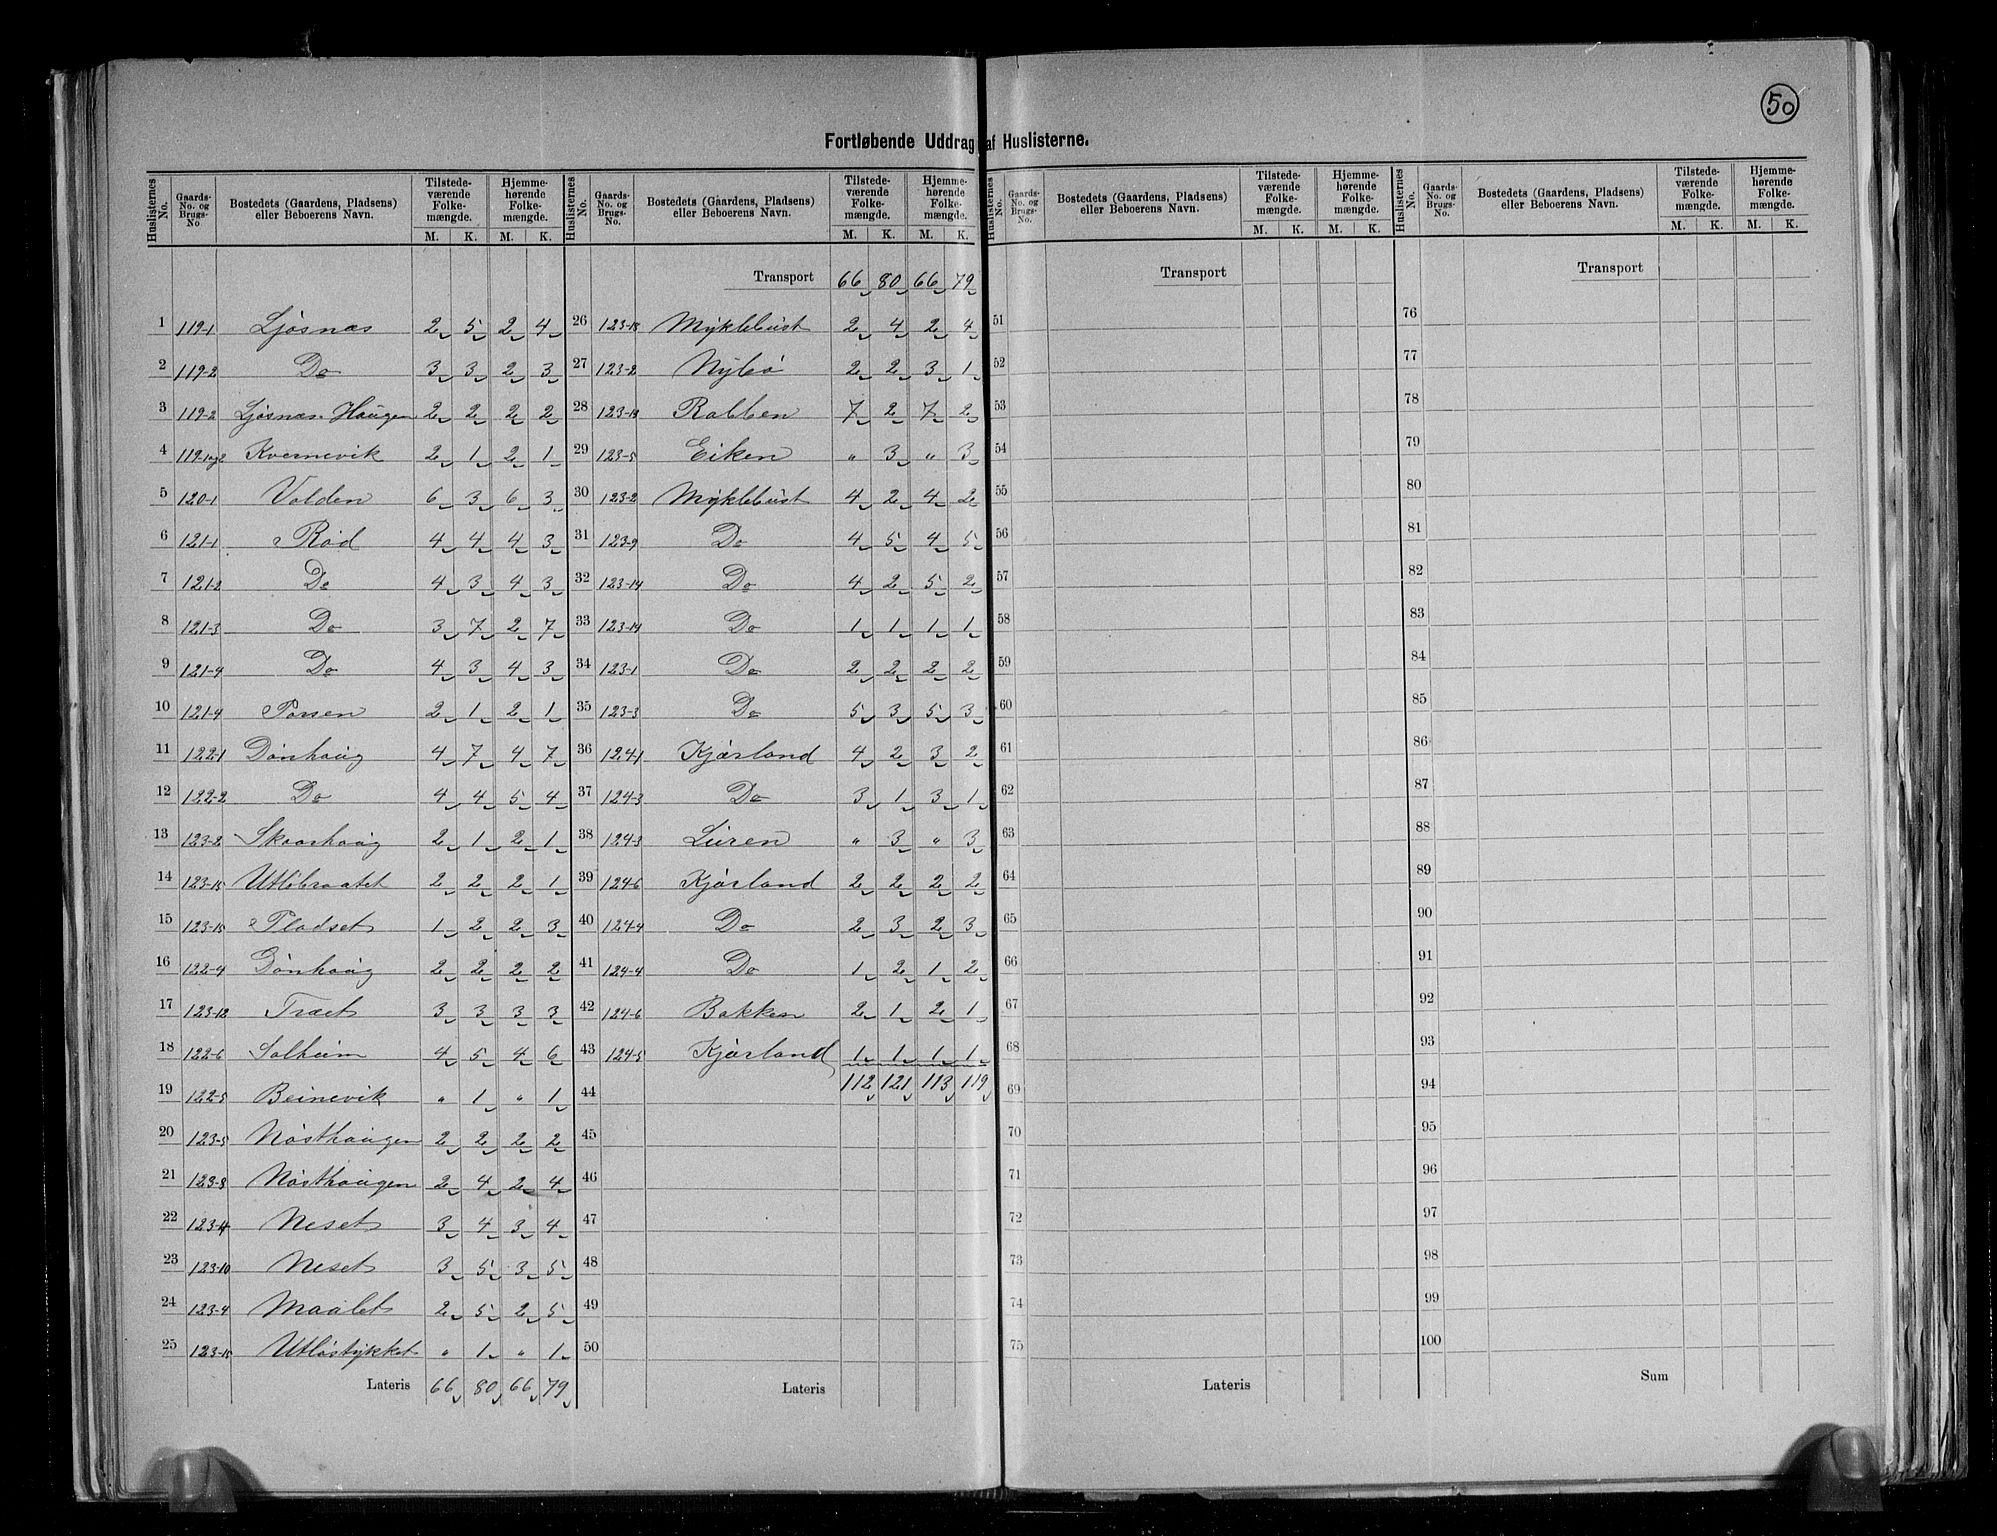 50
Fortløbende Uddrag af Huslisterne.
Huslisternes No. | Gaards-No. og Brugs-No. | Bostedets (Gaardens, Pladsens) eller Beboerens Navn. | Tilstedeværende Folkemængde. M. K. | Hjemmehørende Folkemængde. M. K.
1 119-1 Ljøsnæs 2 5 2 4
2 119-2 Do 3 3 2 3
3 119-2 Ljøsnæs Haugen 2 2 2 2
4 119-1og2 Kvernevik 2 1 2 1
5 120-1 Volden 6 3 6 3
6 121-1 Rød 4 4 4 3
7 121-2 Do 4 3 4 3
8 121-3 Do 3 7 2 7
9 121-4 Do 4 3 4 3
10 121-4 Porsen 2 1 2 1
11 122-1 Dönhaug 4 7 4 7
12 122-2 Do 4 4 5 4
13 123-2 Skaarhaug 2 1 2 1
14 123-15 Utlöbraatet 2 2 2 1
15 123-15 Pladset 1 2 2 3
16 122-4 Dönhaug 2 2 2 2
17 123-12 Træet 3 3 3 3
18 122-6 Solheim 4 5 4 6
19 122-5 Beinevik " 1 " 1
20 123-5 Nøsthaugen 2 2 2 2
21 123-8 Nøsthaugen 2 4 2 4
22 123-4 Neset 3 4 3 4
23 123-10 Neset 3 5 3 5
24 123-4 Maalet 2 5 2 5
25 123-15 Utløstykket " 1 " 1
Lateris 66 80 66 79
Huslisternes No. | Gaards-No. og Brugs-No. | Bostedets (Gaardens, Pladsens) eller Beboerens Navn. | Tilstedeværende Folkemængde. M. K. | Hjemmehørende Folkemængde. M. K.
Transport 66 80 66 79
26 123-13 Myklebust 2 4 2 4
27 123-2 Nybö 2 2 3 1
28 123-19 Rabben 7 2 7 2
29 123-5 Eiken " 3 " 3
30 123-2 Myklebust 4 2 4 2
31 123-9 Do 4 5 4 5
32 123-14 Do 4 2 5 2
33 123-14 Do 1 1 1 1
34 123-1 Do 2 2 2 2
35 123-3 Do 5 3 5 3
36 124-1 Kjærland 4 2 3 2
37 124-3 Do 3 1 3 1
38 124-3 Luren " 3 " 3
39 124-6 Kjærland 2 2 2 2
40 124-4 Do 2 3 2 3
41 124-4 Do 1 2 1 2
42 124-6 Bakken 2 1 2 1
43 124-5 Kjærland 1 1 1 1
44 112 121 113 119
45
46
47
48
49
50
Lateris
Huslisternes No. | Gaards-No. og Brugs-No. | Bostedets (Gaardens, Pladsens) eller Beboerens Navn. | Tilstedeværende Folkemængde. M. K. | Hjemmehørende Folkemængde. M. K.
Transport
51
52
53
54
55
56
57
58
59
60
61
62
63
64
65
66
67
68
69
70
71
72
73
74
75
Lateris
Huslisternes No. | Gaards-No. og Brugs-No. | Bostedets (Gaardens, Pladsens) eller Beboerens Navn. | Tilstedeværende Folkemængde. M. K. | Hjemmehørende Folkemængde. M. K.
Transport
76
77
78
79
80
81
82
83
84
85
86
87
88
89
90
91
92
93
94
95
96
97
98
99
100
Sum